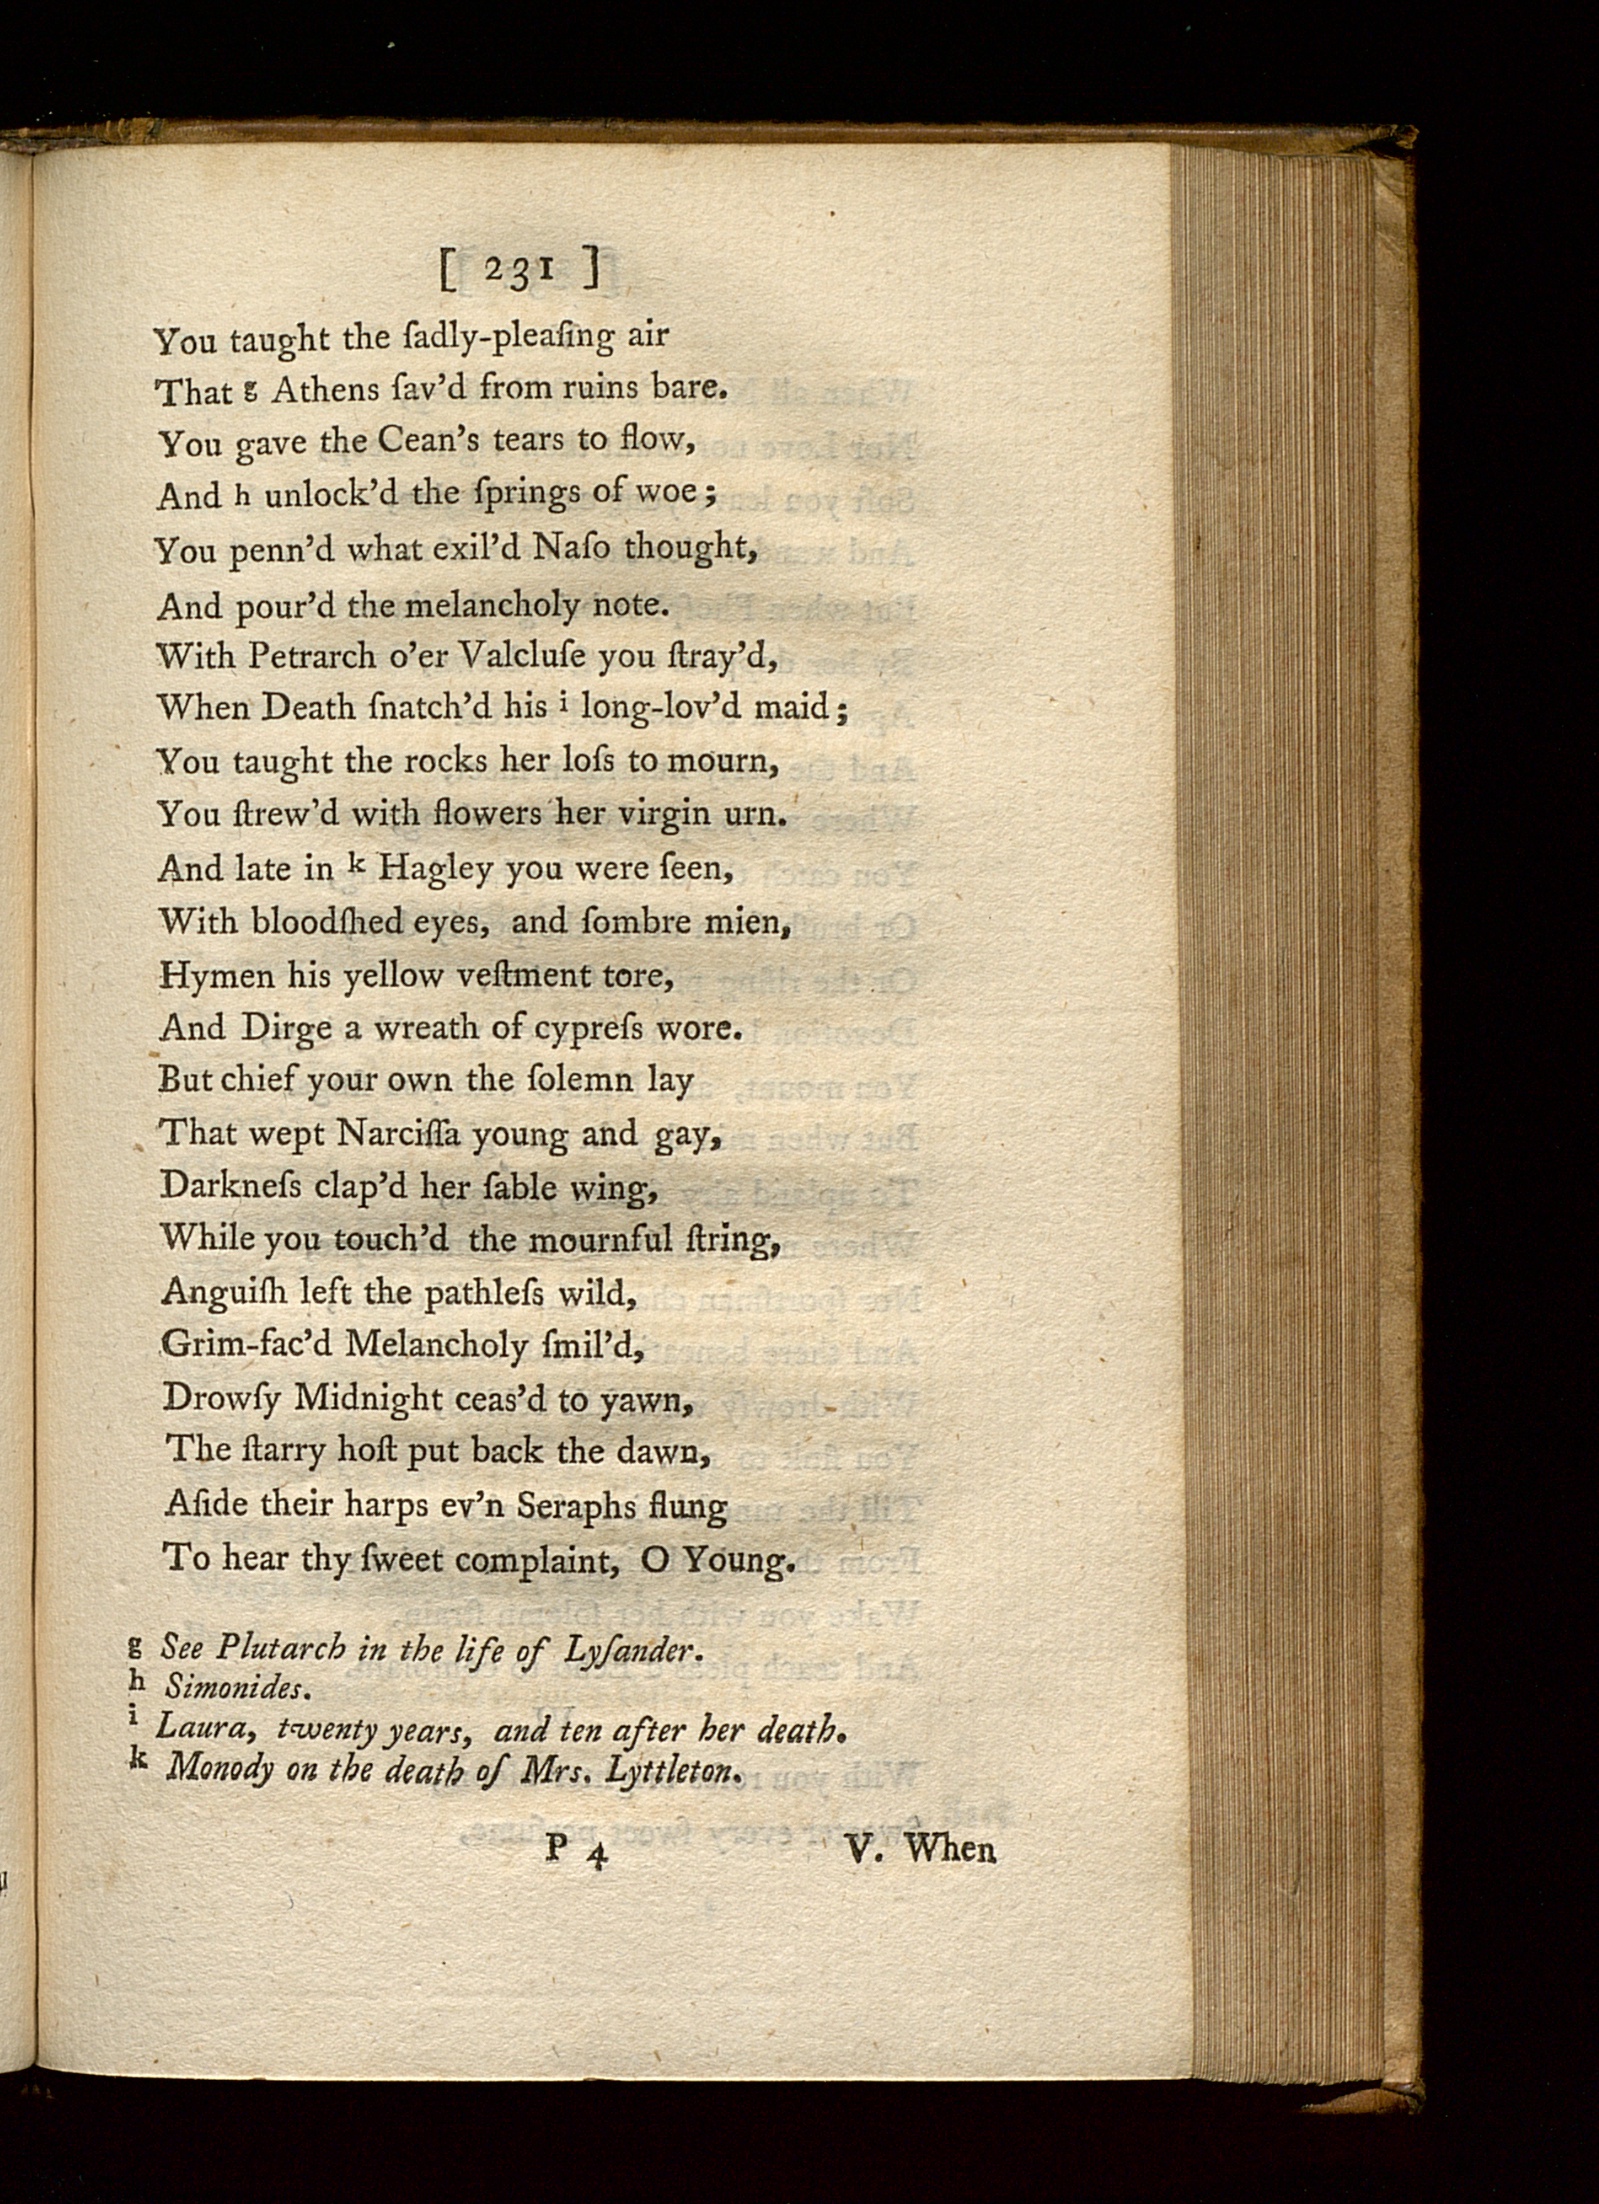 [ 231 ]
You taught the ſadly-pleaſing air
That g Athens ſav’d from ruins bare.
You gave the Cean’s tears to flow,
And h unlock’d the ſprings of woe;
You penn’d what exil’d Naſo thought,
And pour’d the melancholy note.
With Petrarch o’er Valcluſe you ſtray’d,
When Death ſnatch’d his i long-lov’d maid;
You taught the rocks her loſs to mourn,
You ſtrew’d with flowers her virgin urn.
And late in k Hagley you were ſeen,
With bloodſhed eyes, and ſombre mien,
Hymen his yellow veſtment tore,
And Dirge a wreath of cypreſs wore.
But chief your own the ſolemn lay
That wept Narciſſa young and gay,
Darkneſs clap’d her ſable wing,
While you touch’d the mournful ſtring,
Anguiſh left the pathleſs wild,
Grim-fac’d Melancholy ſmil’d,
Drowſy Midnight ceas’d to yawn,
The ſtarry hoſt put back the dawn,
Aſide their harps ev’n Seraphs flung
To hear thy ſweet complaint, O Young.
g See Plutarch in the life of Lyſander.
h Simonides.
i Laura, twenty years, and ten after her death.
k Monody on the death of Mrs. Lyttleton.
P 4 V. When